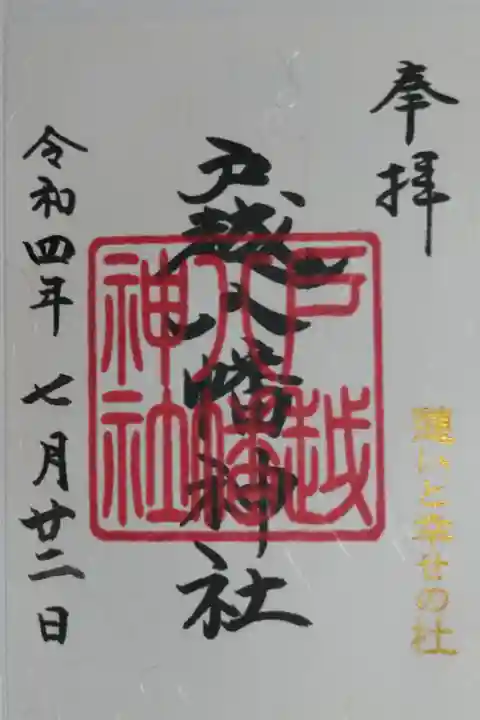 奉拝
戸越八幡神社
戸越
八幡
神社
いと幸せの
令和四年 七月廿二日